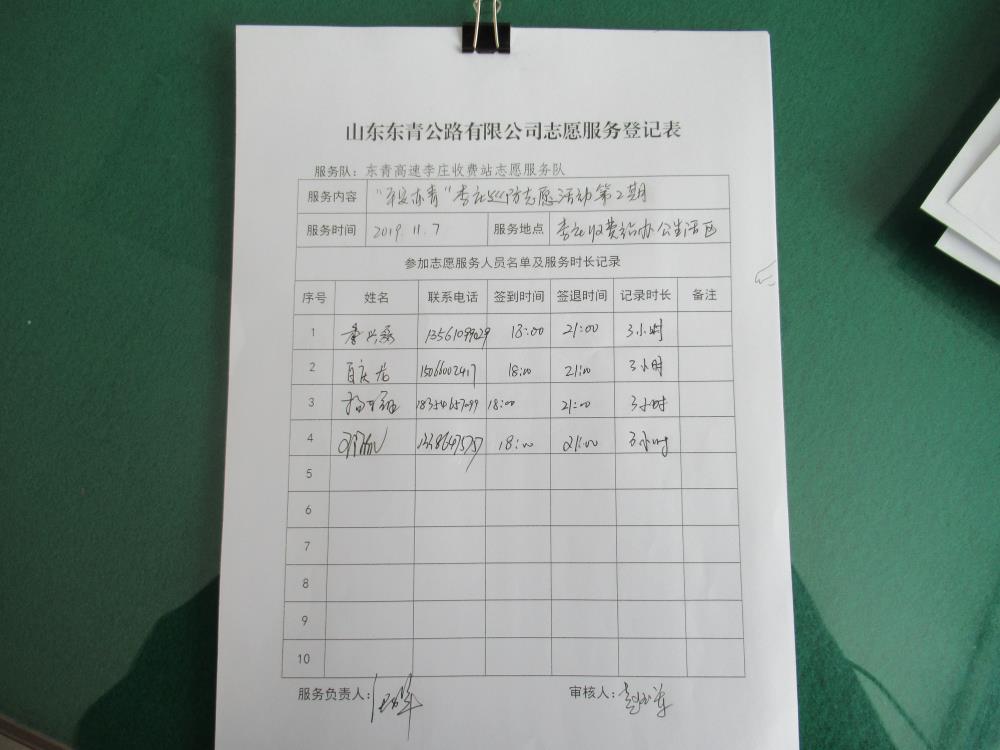 山东东青公路有限公司志愿服务登记表
服务队：东青高速李庄收费站志愿服务队
服务内容 "平安东青"李庄巡防志愿活动第2期
服务时间 2019.11.7 服务地点 李庄收费站办公生活区
参加志愿服务人员名单及服务时长记录
序号 姓名 联系电话 签到时间 签退时间 记录时长 备注
1 18:00 21:00 3小时
2 15066002417 18:00 21:00 3小时
3 18354657099 18:00 21:00 3小时
4 18:00 21:00 3小时
5
6
7
8
9
10
服务负责人： 审核人：